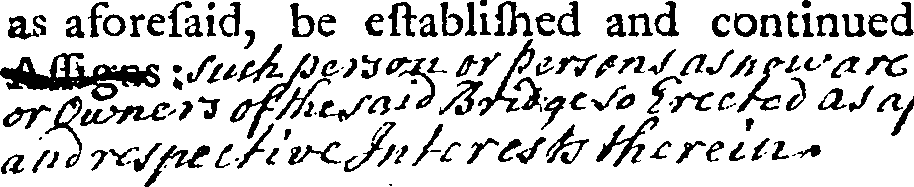 as aforeſaid, be eſtabliſhed and continued
Aſſigns : such person or persons as now are
or Owners of the said Bridge so Erected as ap
and respective Interests therein.